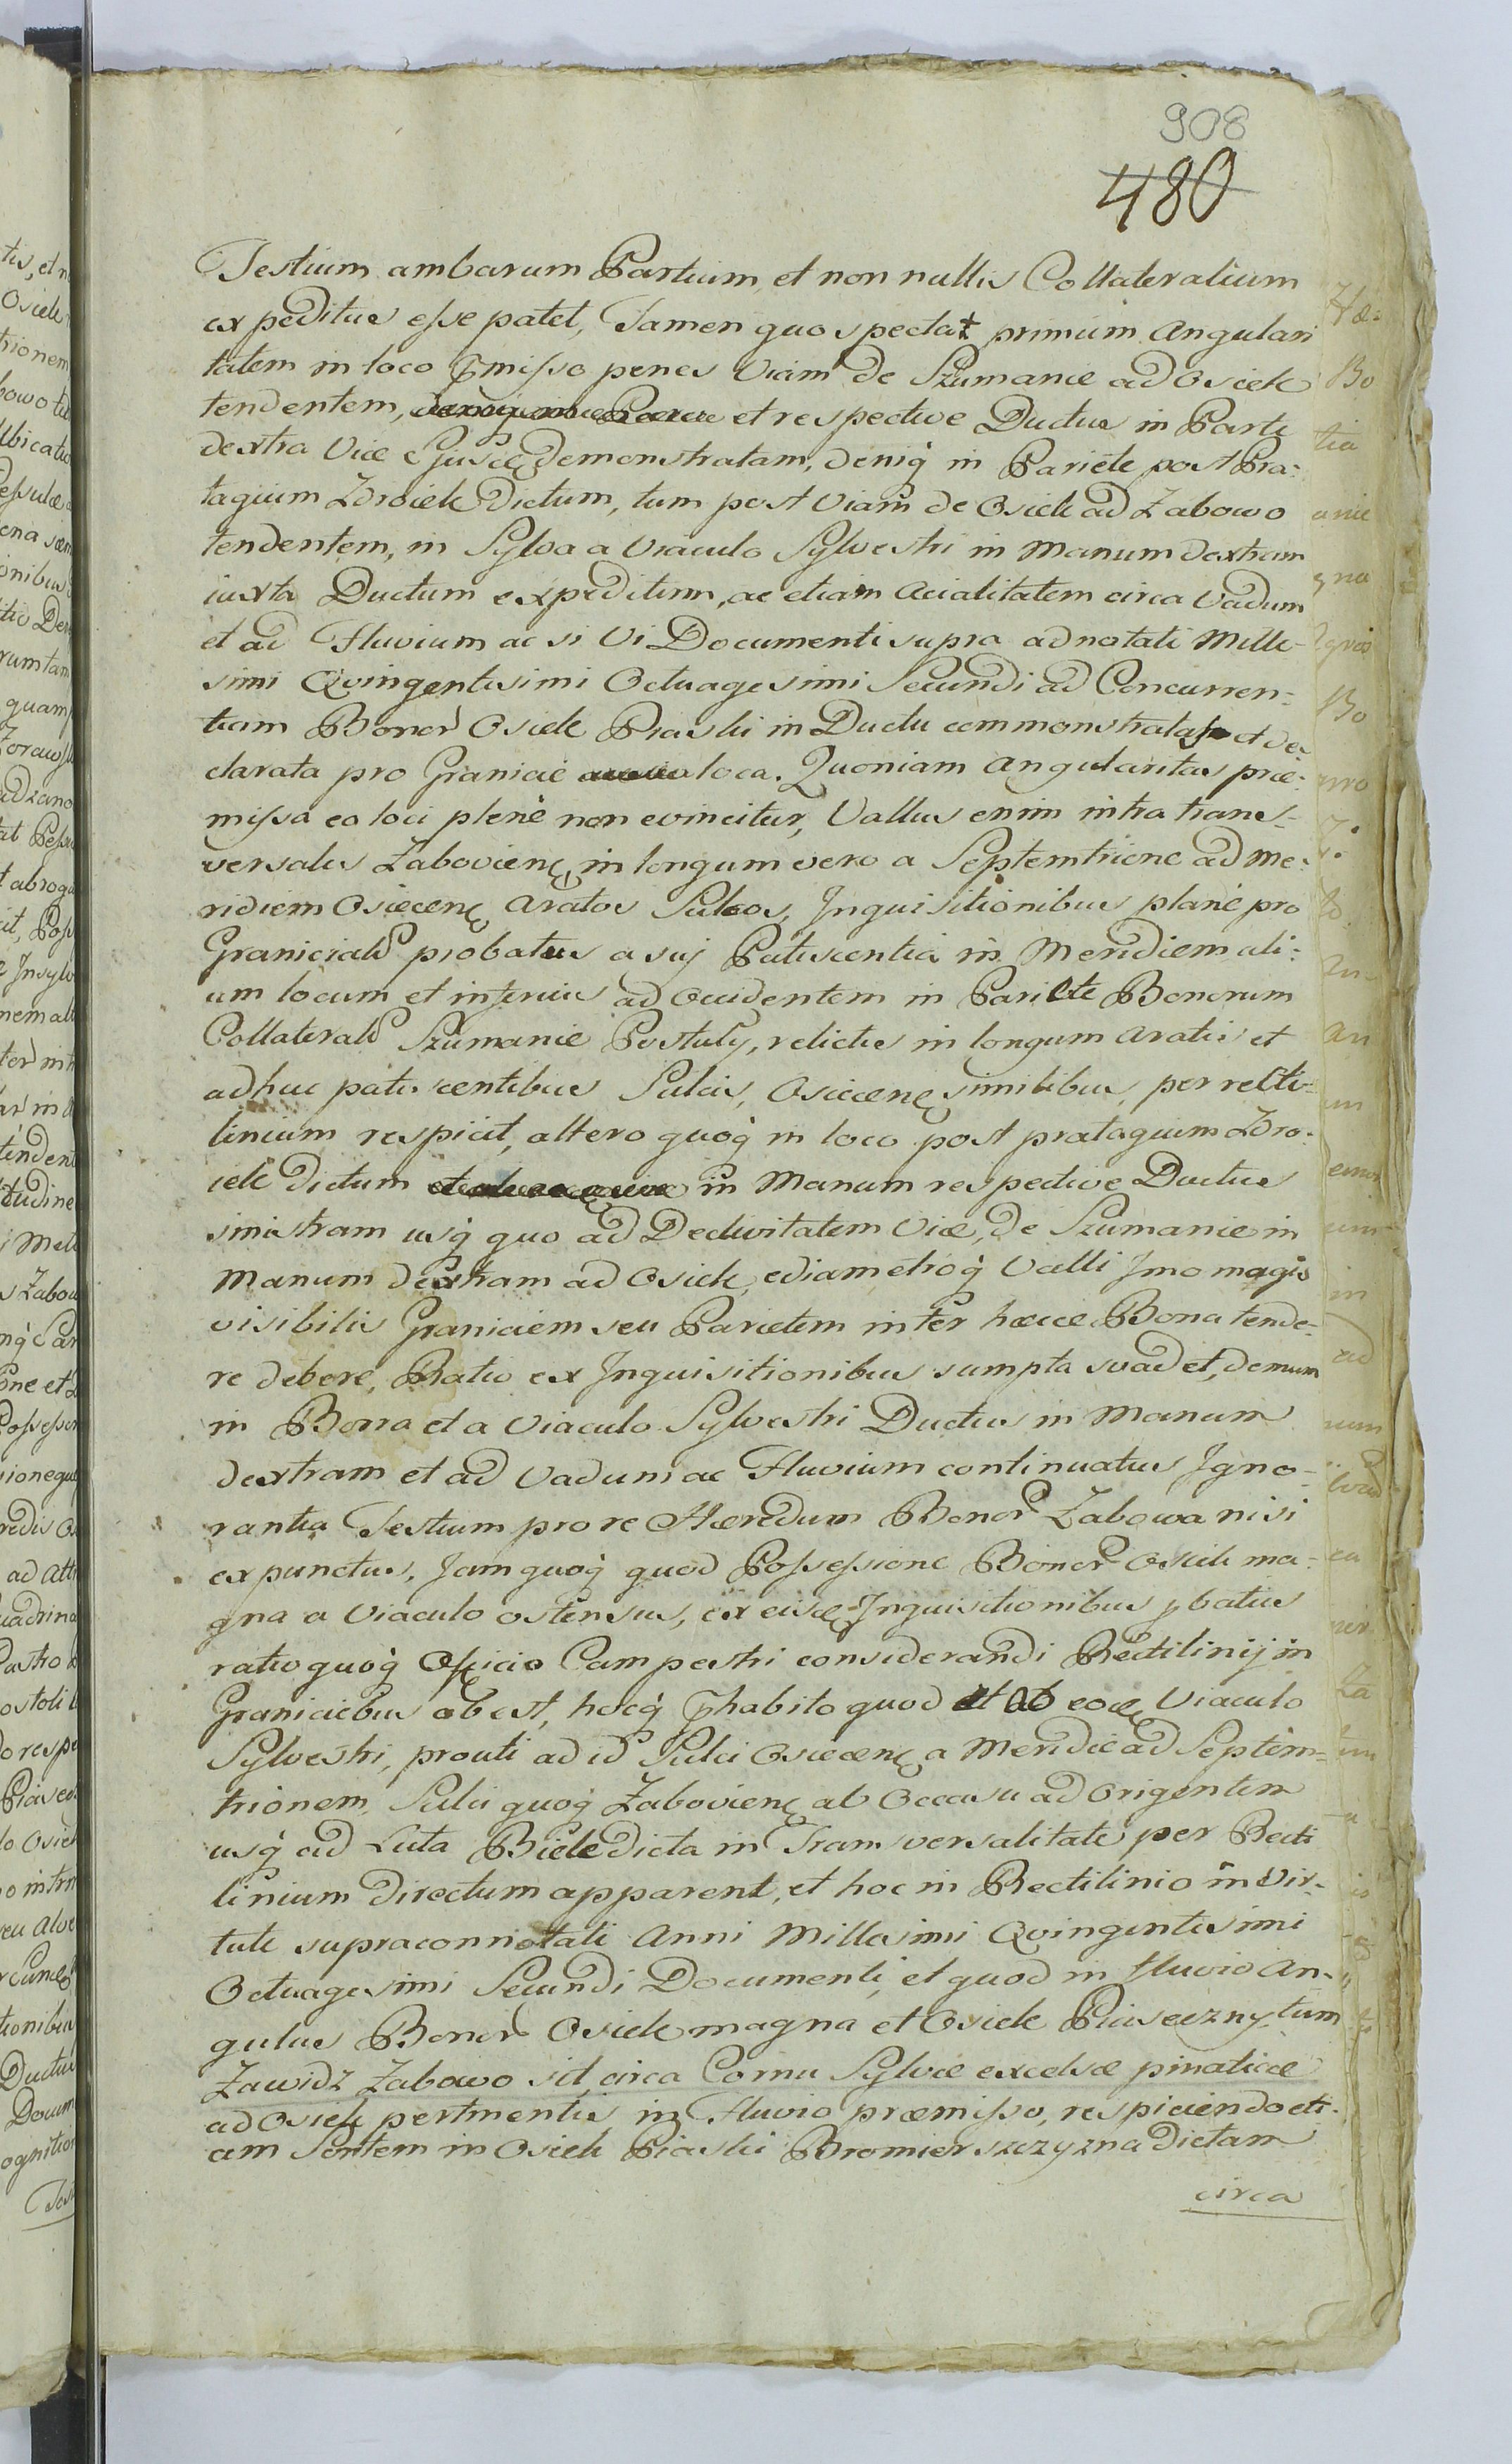 908
480
Testium ambarum Partium et non nullis Collateralium
expeditus esse patet, Tamen quo spectat primum Angulari
tatem in loco pmisso penes Viam de Szumanie ad Osiek
tendentem, et respective Ductus in Parte
dextra Viæ ejusd demonstratam, deniq in Pariete post Pra:
tagium Zdroiek Dictum, tum post Viam de Osiek ad Zabowo
tendentem, in Sylva a Viaculo Sylvestri in Manum dextram
iuxta Ductum expeditum, ac etiam Acialitatem circa Vadum
et ad Fluvium ac si Vi Documenti supra adnotati Mille-
simi Qvingentesimi Octuagesimi Secundi ad Concurren-
tiam Bonor Osiek Piaski in Ductu commonstrata et de
clarata pro Graniciê loca. Quoniam Angularitas præ:
missa eo loci plenè non evincitur, Vallus enim intra trans-
versales Zaboviens, in longum vero a Septemtrione ad Me-
ridiem Osiecens Aratos Sulcos, Inquisitionibus planè pro
Graniciali probatus a suj Patescentia in Meridiem ali:
um locum et inferius ad Occidentem in Pariete Bonorum
Collaterali Szumanie Pustuły, relictis in longum Aratis et
adhuc patescentibus Sulcis, Osiecens similibus, per recti-
linium respicit, altero quoq in loco post pratagium Zdro-
iek dictum in Manum respective Ductus
sinistram usq quo ad Declivitatem Viæ, de Szumanie in
Manum dextram ad Osiek, ediametroq Valli Imo magis
visibilis Graniciem seu Parietem inter hæcce Bona tende-
re debere, Ratio ex Inquisitionibus sumpta svadet, demum
in Borra et a Viaculo Sylvestri Ductus in Manum
dextram et ad Vadum ac Fluvium continuatus Igno-
rantia Testium pro re Hæredum Bonor Zabowa nisi
expunctus, Jam quoq quod Possessione Bonor Osiek ma-
gna a Viaculo ostensus, ex eisd Inquisitionibus pbatus
ratio quoq Officio Campestri considerandi Rectilinij in
Graniciebus abest, hocq phabito quod et ab eod Viaculo
Sylvestri, prouti ad id Sulci Osiecens a Meridie ad Septem-
trionem, Sulci quoq Zaboviens ab Occasu ad Origentem
usq ad Luta Biele dicta in Transversalitate per Recti
linium directum apparent, et hoc in Rectilinio in Vir-
tute supraconnotati Anni Millesimi Qvingentesimi
Octuagesimi Secundi Documenti, et quod in fluvio An-
gulus Bonor Osiek magna et Osiek Piaseczny tum
Zawidz Zabowo sit circa Cornu Sylvæ excelsæ pinaticæ
ad Osiek pertinentis in Fluvio præmisso, respiciendo eti-
am Sortem in Osiek Piaski Bromierszczyzna Dictam
circa